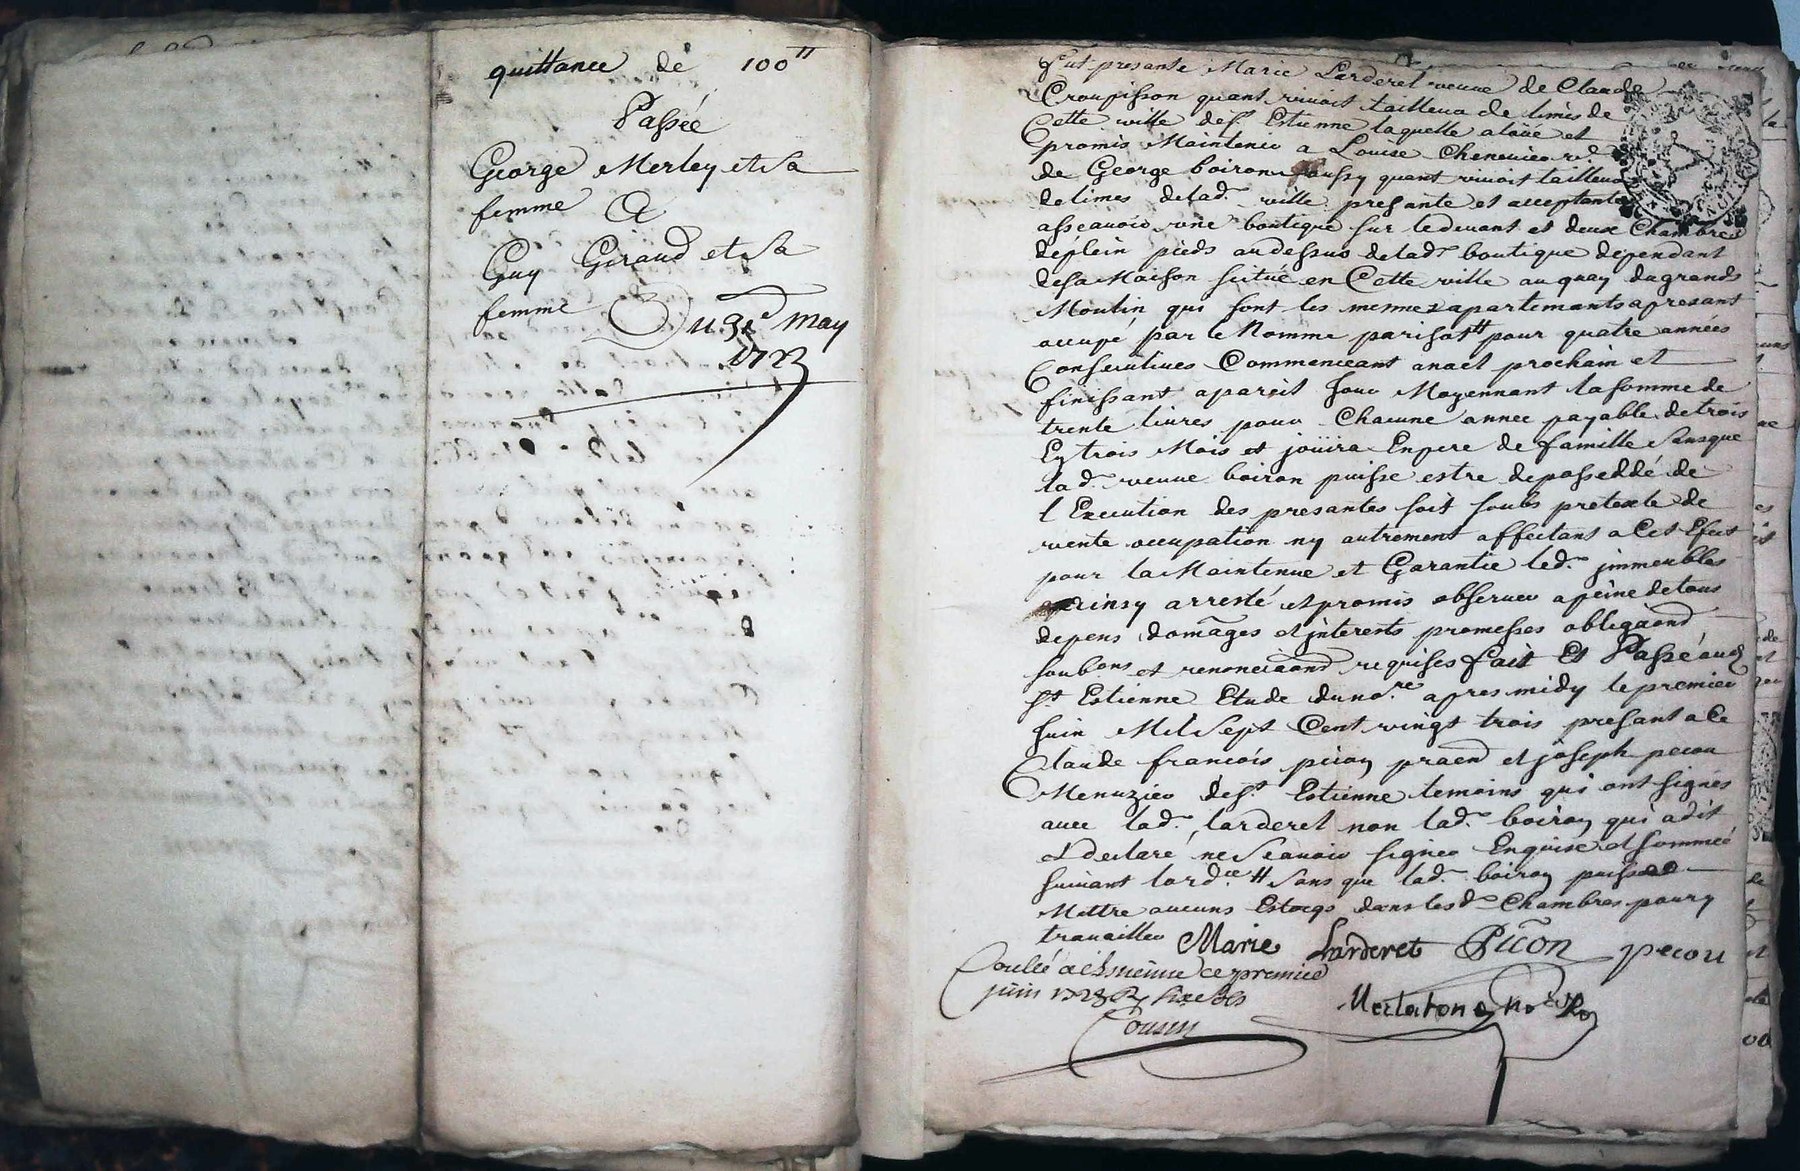 quittance de 100tt
Passée
George Merley et sa
femme A
Guy Giraud et sa
femme
Du 31e May
1723
fut presante Marie Larderet veuve de Claude
Croupisson quant vivoit tailleur de limes de
Cette ville de St Estienne laquelle a loüé et
promis Maintenir a Louise Chenevier ve
de George boiron aussy quant vivoit tailleur
de limes de lad. ville presante et acceptante
asseavoir une boutique sur le devant et deux Chambres
de plein pieds au dessus de lad. boutique dependant
de sa Maison scitué en Cette ville au quay du grand
Moulin qui sont les mesmes apartements a presant
occupé par le Nomme parisot tt pour quatre années
Consecutives Commenceant a noel prochain et
finissant a pareil Jour Moyennant la somme de
trente livres pour Chacune annee payable de trois
En trois Mois et joüira En pere de famille sans que
lad. veuve boiron puisse estre deposseddé de
l Execution des presantes soit soubs pretexte de
vente occupation ny autrement affectant a Cet Efect
pour la Maintenue et Garantie led. jmmeubles
ainsy arresté et promis observer a peine de tous
depens domages et jnterests promesses obligaons
soubons et renonciaons requises fait Et Passé aud.
St Estienne Etude du nore apres midy le premier
Juin Mil sept Cent vingt trois presant a Ce
Claude francois picon praen et joseph pecou
Menuzier de St Estienne temoins qui ont signés
avec lad. larderet non lad. boiron qui a dit
et declaré ne seavoir signer Enquise et sommée
suivant lordce tt sans que lad. boiron puisse
Mettre aucuns Estoegs dans lesd. Chambres pour y
travailler Marie Larderet Picon pecou
Coullé a St Etienne ce premier
juin 1723 Rx six sols
Cousin Merlaton No Ro